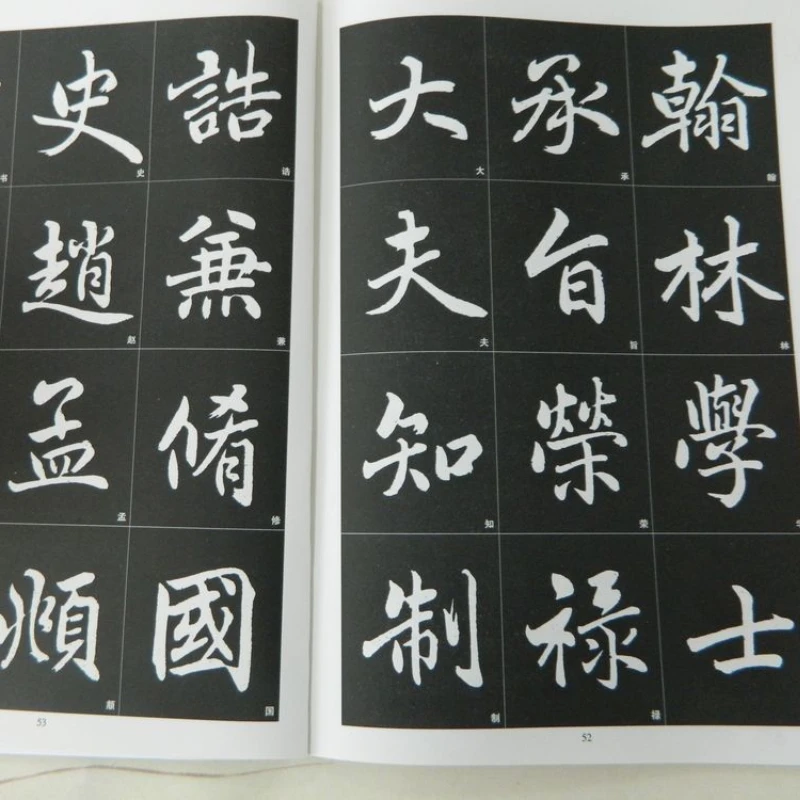 翰林學士
翰林
承旨榮祿
承旨荣禄
大夫知制
大夫知制
52
誥兼脩國
诰兼修国
史趙孟頫
史赵孟頫
书
53